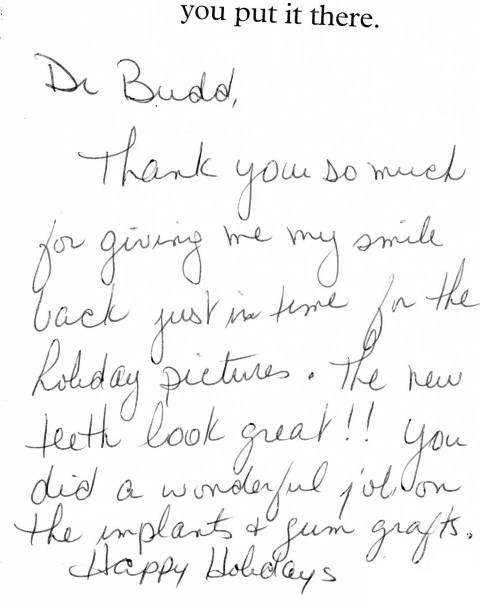 you put it there.
Dr Budd,
Thank you so much
for giving me my smile
back just in time for the
holiday pictures. The new
teeth look great!! You
did a wonderful job on
the implants + gum grafts.
Happy Holidays